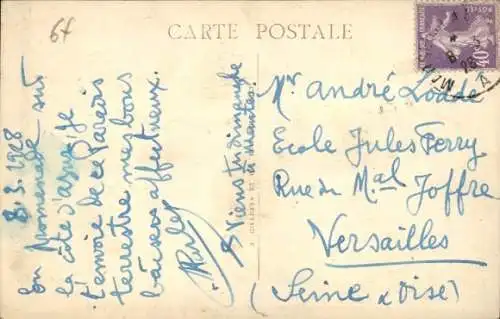 6f
CARTE POSTALE
8.3.1928
En Promenade sur
la côte d'azur je
t'envoie de ce Paradis
terrestre mes bons
baisers affectueux.
Viens tu dimanche
à Mantes.
Mr André
Ecole Jules Ferry
Rue du Mal Joffre
Versailles
(Seine & Oise)
40